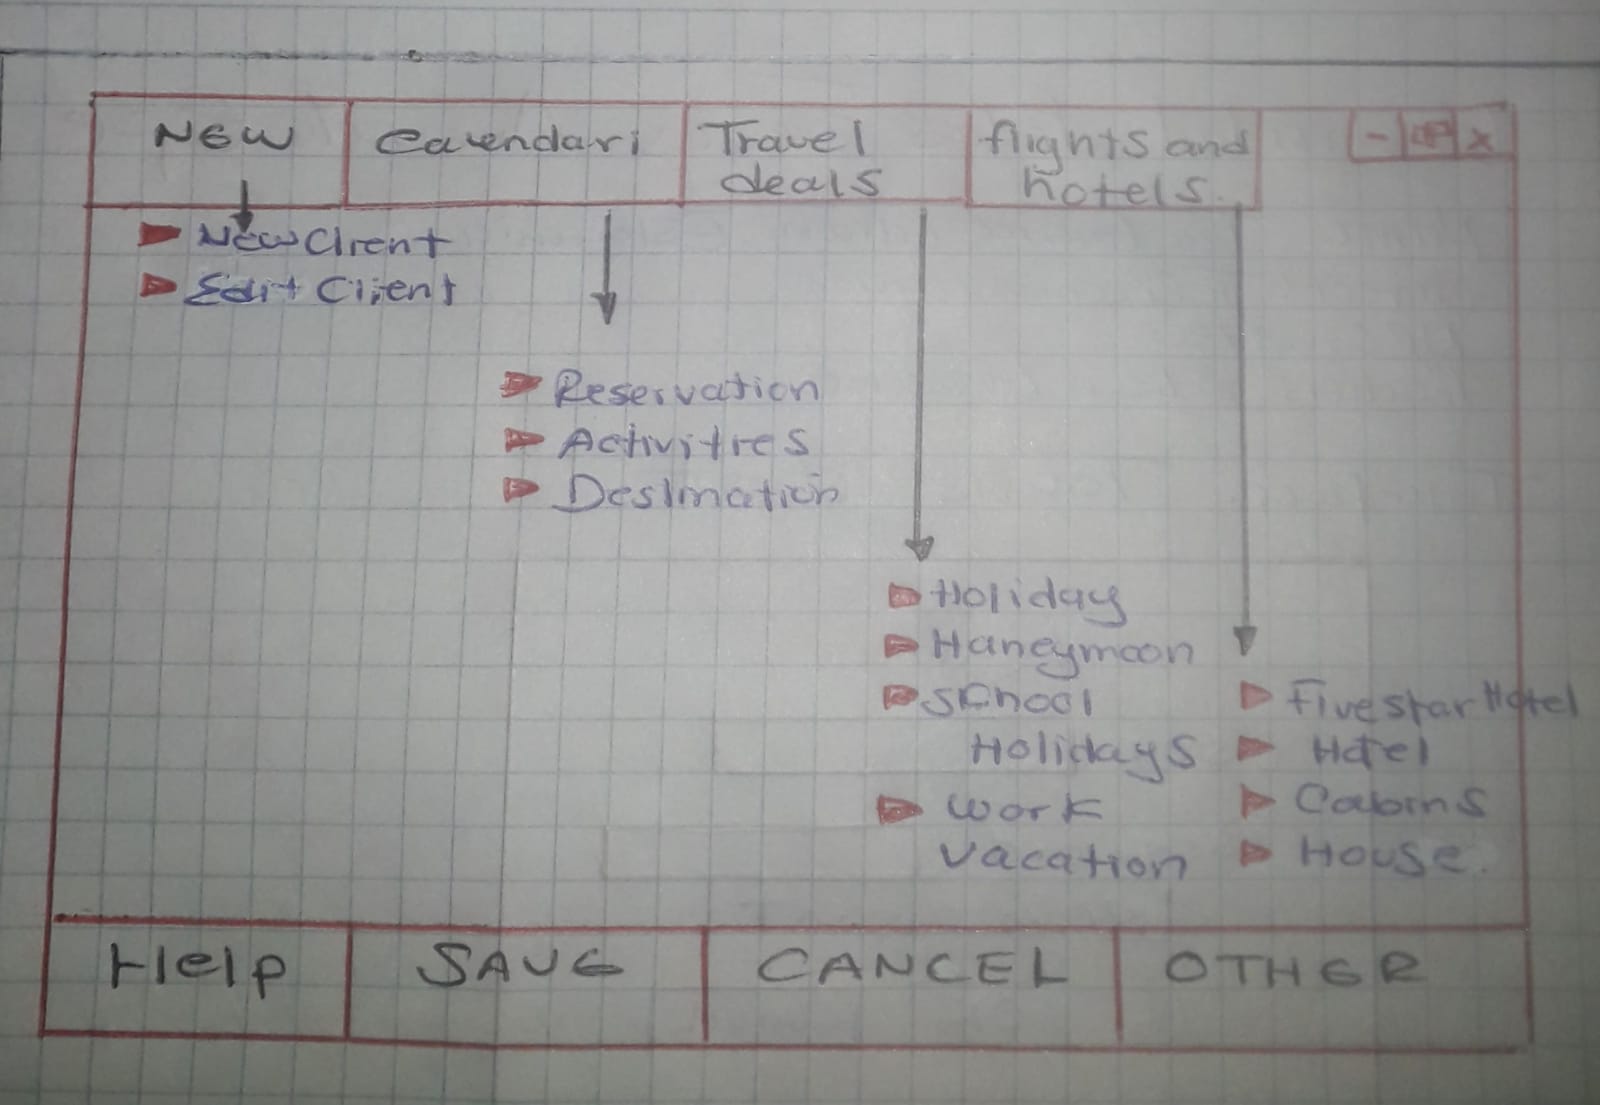 NEW
Calendari
Travel
deals
flights and
hotels.
- x
New Client
Edit Client
Reservation
Activities
Destination
Holiday
Haneymoon
School
Holidays
Work
Vacation
Five star Hotel
Hotel
Cabins
House.
Help
SAVE
CANCEL
OTHER